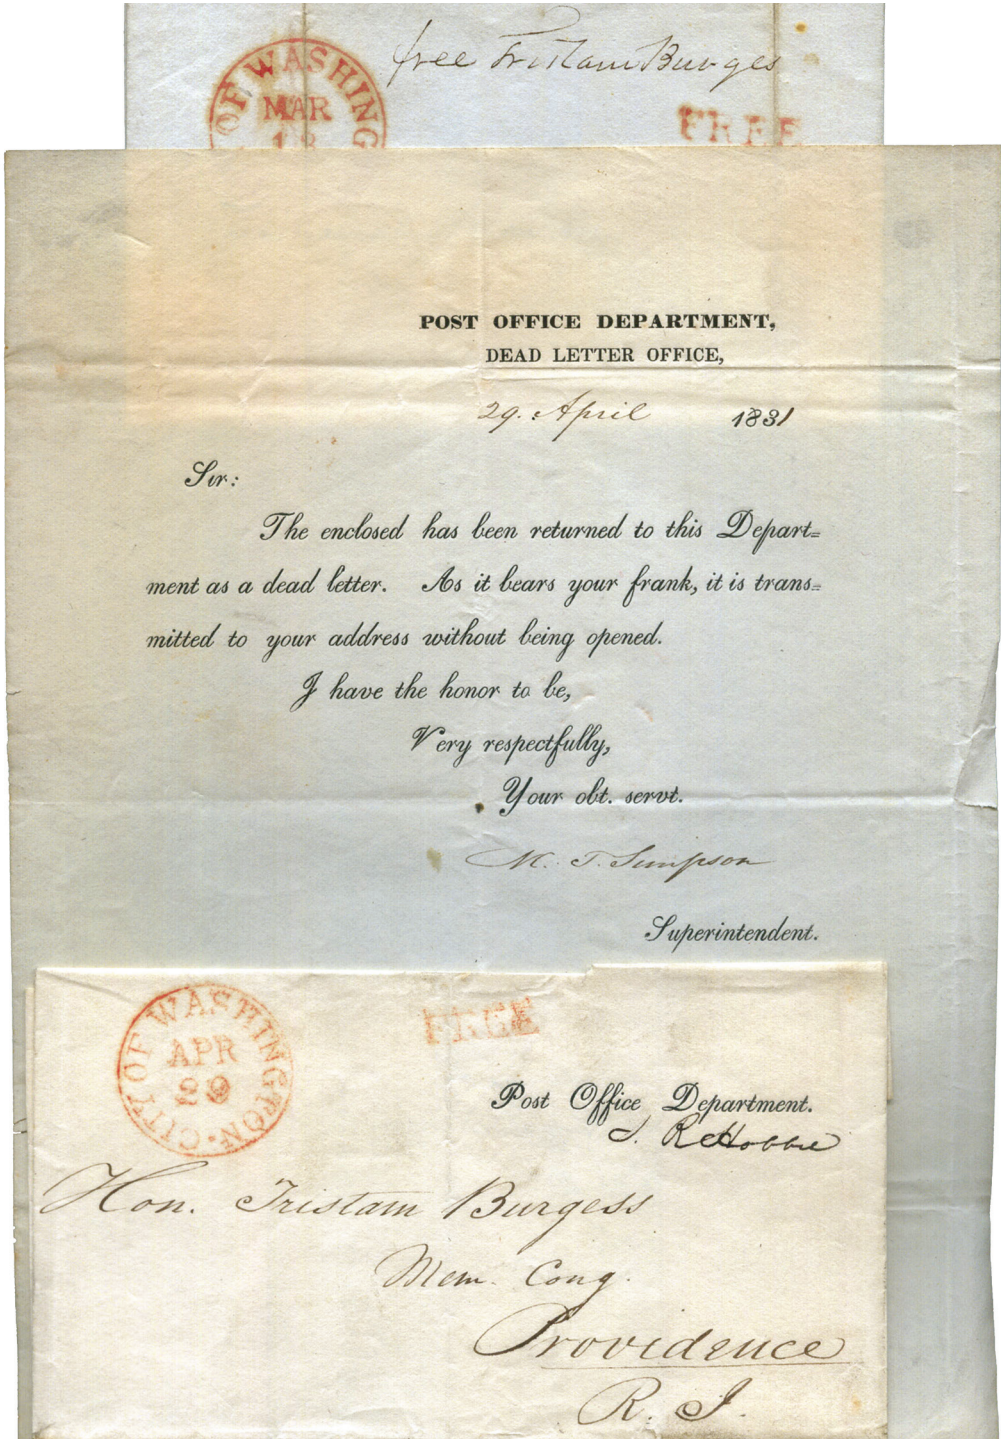 free Tristam Burges
OF WASHING
MAR
18
FREE
POST OFFICE DEPARTMENT,
DEAD LETTER OFFICE,
29. April 1831
Sir:
The enclosed has been returned to this Depart=
ment as a dead letter. As it bears your frank, it is trans=
mitted to your address without being opened.
I have the honor to be,
Very respectfully,
Your obt. servt.
Simpson
Superintendent.
CITY OF WASHINGTON
APR
29
FREE
Post Office Department.
S. R Hobbie
Hon. Tristam Burgess
Mem. Cong.
Providence
R. I.